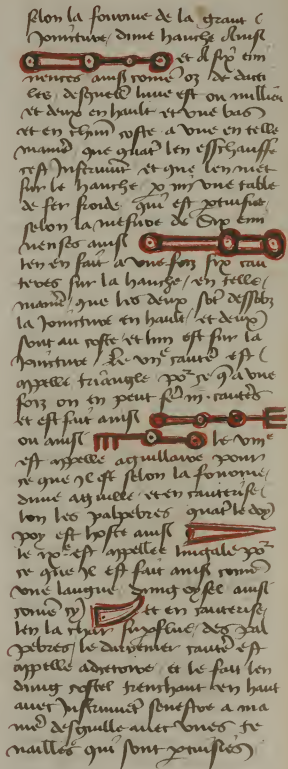 selon la fourme de la grant
Joincture dune hanche Ainsi
et a six emi
nences ainsi come os de dactî
les desquels lune est ou millieu
et deux en hault et une bas
et en chūn coste a une en telle
maniē que quāt len esschauffe
cest Instrumēt et que len met
sur le hanche p mi une table
de fer froide qui est ptuisiee
selon la mesure de Six emi
nenses ainsi
len en fait a une foiz six cau
teres sur la hanche en telle
maniē que les deux sōt dessoubz
la Joincture en hault et deux
sont au coste et lun est sur la
Joincture Le vııͤ cauteē est
appelle triangle poͬ ce qͣ a une
foiz on en peut fēˑ ııı cauteēs
et est fait ainsi
ou ainsi le vıııͤ
est appelle aguillaire pour
ce que Il est selon la fourme
dune aguille et en cauterise
lon les palpebres quāt le
poy est hoste ainsi
le ıxͤ est appelle lingale poͬ
ce que Il est fait ainsi come
une langue dung oysel ainsi
come cy et en cauterise
len la char supflue des pal
pebres le darrenier cauteē est
appelle et le fait len
dung costel trenchant en hault
avec Instrumēt senestre a ma
niē desguille avec unes te
nailles qui sont ptuisiees